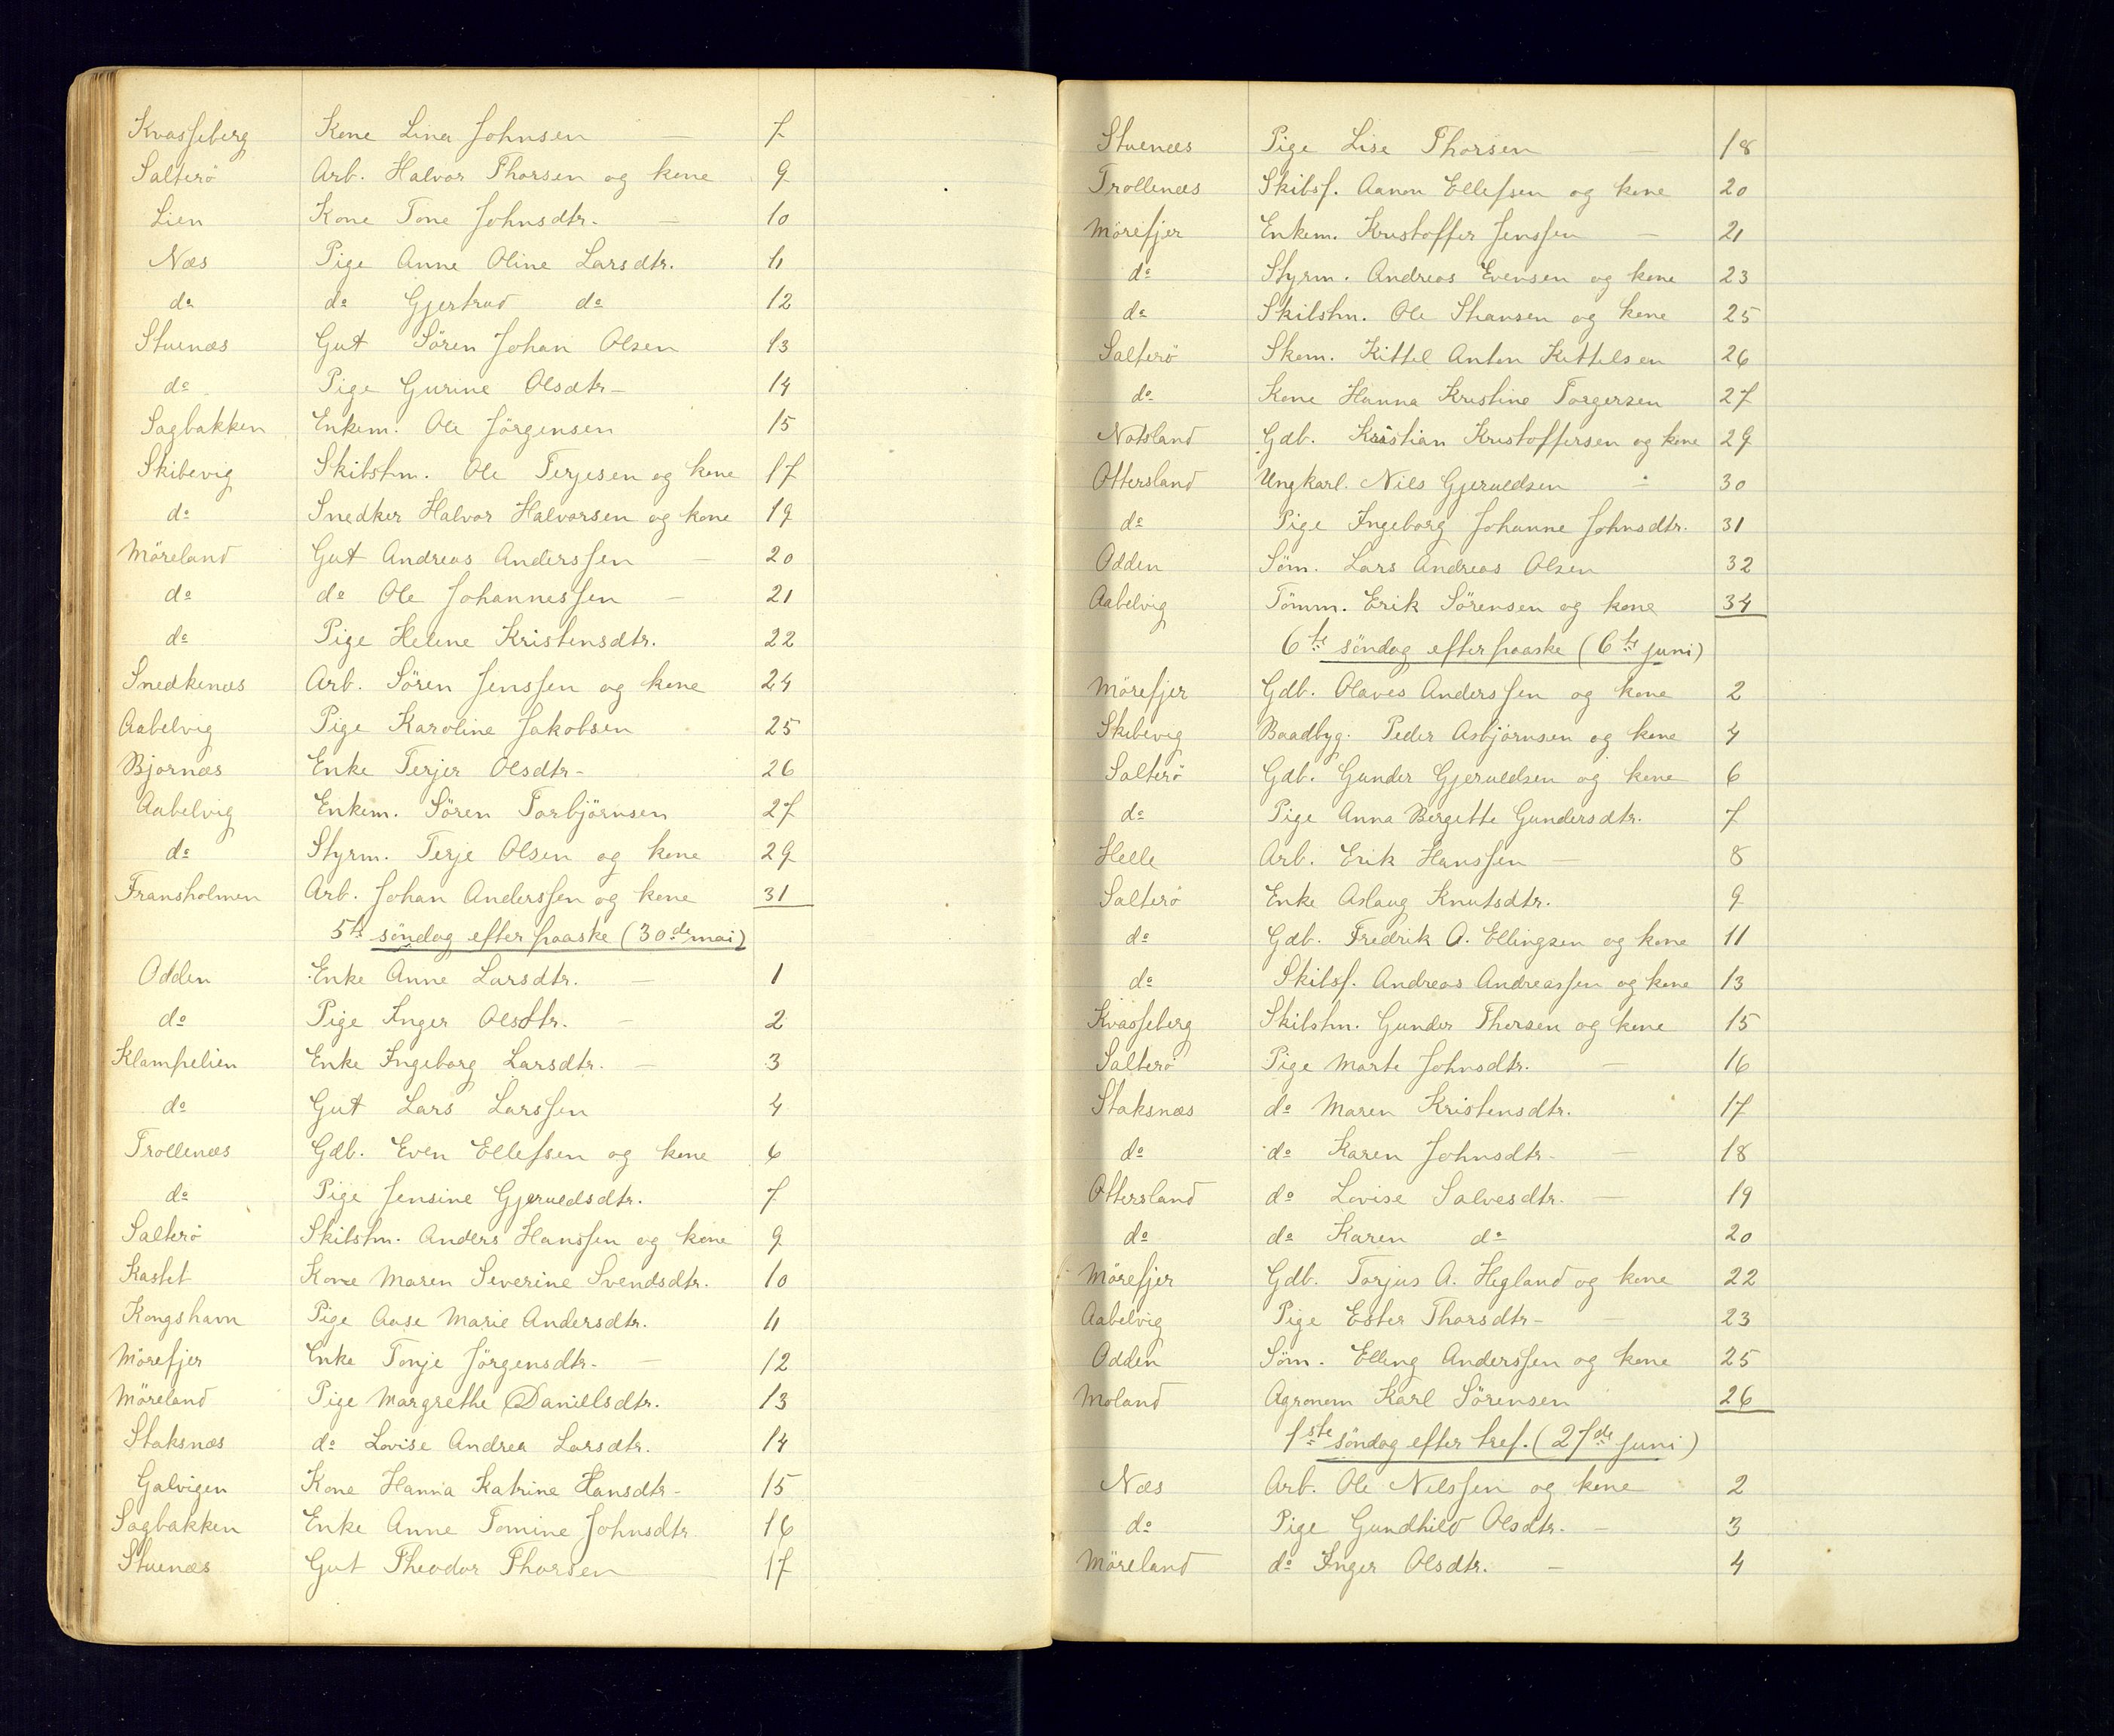 Kvasseberg Kone Lina Johnsen — 7
Salterö Arb. Halvor Thorsen og kone 9
Lien Kone Tone Johnsdtr. — 10
Næs Pige Anne Oline Larsdtr. 11
do do Gjertrud do 12
Stuenæs Gut Sören Johan Olsen 13
do Pige Gurine Olsdtr — 14
Sagbakken Enkem. Ole Jörgensen 15
Skibevig Skibstm. Ole Terjesen og kone 17
do Snedker Halvor Halvorsen og kone 19
Möreland Gut Andreas Anderssen — 20
do do Ole Johannessen — 21
do Pige Helene Kristensdtr. 22
Snedkenæs Arb. Sören Jenssen og kone 24
Aabelvig Pige Karoline Jakobsen 25
Bjornæs Enke Terjer Olsdtr — 26
Aabelvig Enkem. Sören Torbjörnsen 27
do Styrm. Terje Olsen og kone 29
Fransholmen Arb. Johan Anderssen og kone 31
5te söndag efter paaske (30de mai)
Odden Enke Anne Larsdtr. — 1
do Pige Inger Olsdtr. — 2
Klampelien Enke Ingeborg Larsdtr. — 3
do Gut Lars Larssen 4
Trollenæs Gdb. Even Ellefsen og kone 6
do Pige Jensine Gjeruldsdtr. 7
Salterö Skibstm. Anders Hanssen og kone 9
Kastet Kone Maren Severine Svendsdtr. 10
Kongshavn Pige Aase Marie Andersdtr. 11
Mörefjer Enke Tonje Jörgensdtr. — 12
Möreland Pige Margrethe Daniellsdtr. 13
Staksnæs do Lovise Andrea Larsdtr. 14
Galvigen Kone Hanna Katrine Hansdtr — 15
Sagbakken Enke Anne Tomine Johnsdtr 16
Stuenæs Gut Theodor Thorsen — 17
Stuenæs Pige Lise Thorsen — 18
Trollenæs Skibsf. Aanon Ellefsen og kone 20
Mörefjer Enkem. Kristoffer Jenssen — 21
do Styrm. Andreas Evensen og kone 23
do Skibstm. Ole Stiansen og kone 25
Salterö Skom. Kittel Anton Kittelsen 26
do Kone Hanna Kristine Torgersen 27
Natsland Gdb. Kristian Kristoffersen og kone 29
Ottersland Ungkarl. Nils Gjeruldsen — 30
do Pige Ingeborg Johanne Johnsdtr. 31
Odden Söm. Lars Andreas Olsen 32
Aabelvig Tömm. Erik Sörensen og kone 34
6te söndag efter paaske (6te juni)
Mörefjer Gdb. Olaves Anderssen og kone 2
Skibevig Baadbyg. Peder Asbjörnsen og kone 4
Salterö Gdb. Gunder Gjeruldsen og kone 6
do Pige Anna Bergette Gundersdtr. 7
Helle Arb. Erik Hanssen — 8
Salterö Enke Aslaug Knutsdtr. 9
do Gdb. Fredrik A. Ellingsen og kone 11
do Skibsf. Andreas Andreassen og kone 13
Kvasseberg Skibstm. Gunder Thorsen og kone 15
Salterö Pige Marte Johnsdtr. — 16
Staksnæs do Maren Kristensdtr. 17
do do Karen Johnsdtr — 18
Ottersland do Lovise Salvesdtr. — 19
do do Karen do 20
Mörefjer Gdb. Torjus A. Hegland og kone 22
Aabelvig Pige Ester Thorsdtr — 23
Odden Söm. Elling Anderssen og kone 25
Moland Agronom Karl Sörensen 26
1ste söndag efter tref. (27de juni)
Næs Arb. Ole Nilssen og kone 2
do Pige Gundhild Olsdtr. — 3
Möreland do Inger Olsdtr. — 4